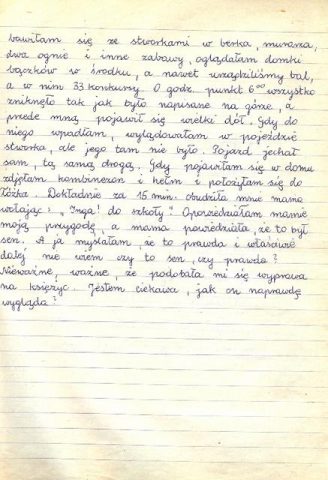 bawiłam się ze stworkami w berka, murarza,
dwa ognie i inne zabawy, oglądałam domki
bączków w środku, a nawet urządziliśmy bal,
a w nim 33 konkursy. O godz. punkt 6⁰⁰ wszystko
zniknęło tak jak było napisane na górze, a
przede mną pojawił się wielki dół. Gdy do
niego wpadłam, wylądowałam w pojeździe
stworka, ale jego tam nie było. Pojazd jechał
sam, tą samą drogą. Gdy pojawiłam się w domu
zdjęłam kombinezon i hełm i położyłam się do
łóżka. Dokładnie za 15 min. obudziła mnie mama
wołając: „Inga! do szkoły" Opowiedziałam mamie
moją przygodę, a mama powiedziała, że to był
sen. A ja myślałam, że to prawda i właściwie
dalej nie wiem czy to sen, czy prawda?
Nieważne, ważne, że podobała mi się wyprawa
na księżyc. Jestem ciekawa, jak on naprawdę
wygląda?